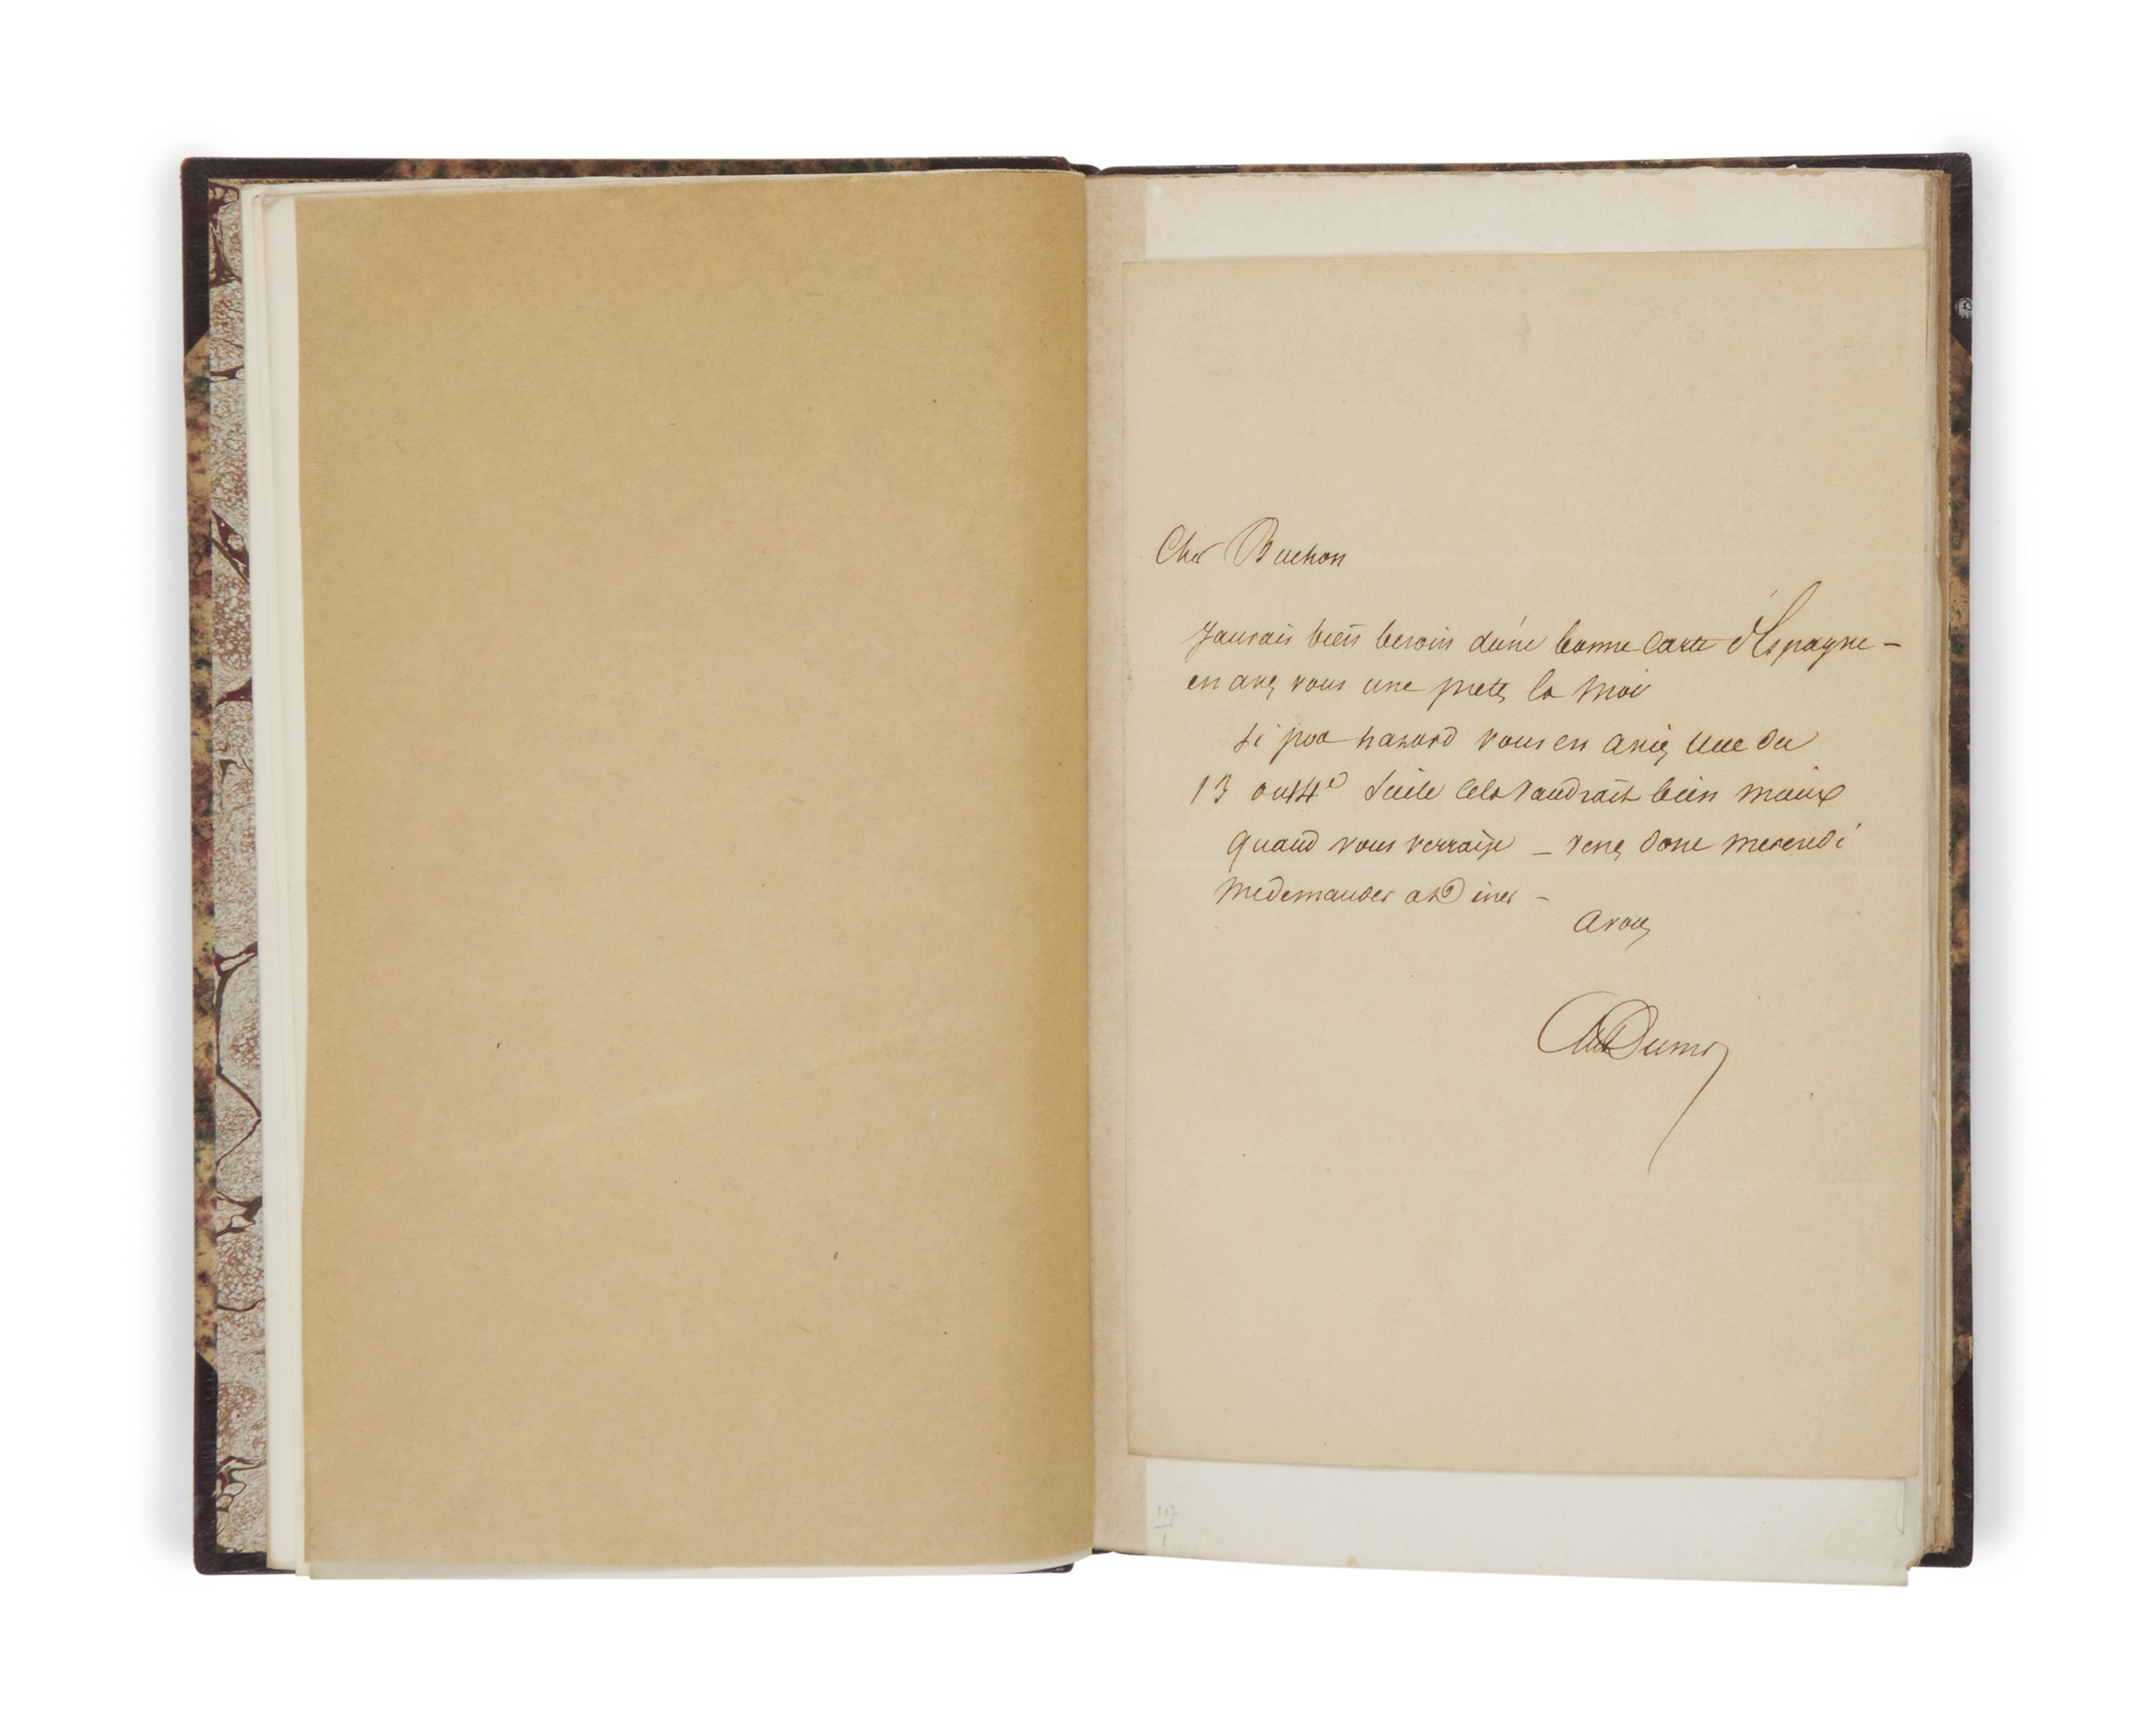 Cher Buchon
Jaurais bien besoin dune bonne Carte d'Espagne –
en avez vous une pretez la moi
si par hasard vous en aviez une du
13 ou 14e Siècle cela vaudrait bien mieux
quand vous verraije – venez donc mercredi
me demander a Diner –
a vous
Alex Dumas
117
1